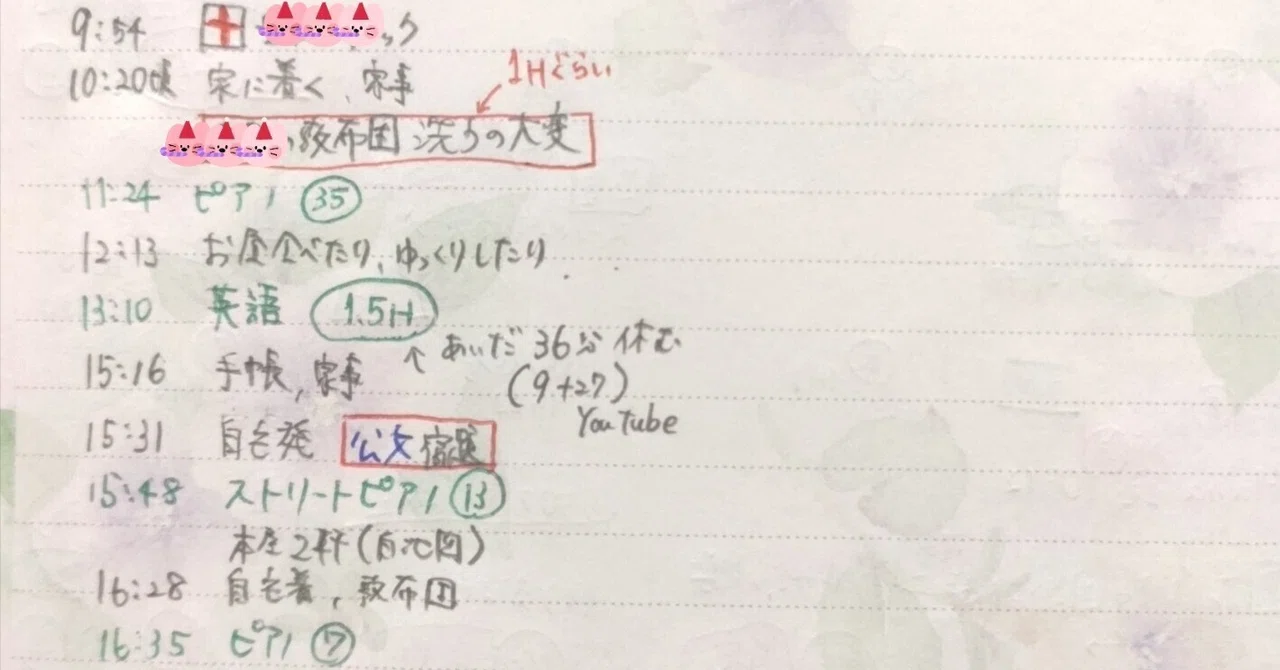 9:54 ック
10:20頃 家に着く、家事
1Hぐらい
敷布団 洗うの大変
11:24 ピアノ 35
12:13 お昼食べたり、ゆっくりしたり
13:10 英語 1.5H
↑ あいだ 36分 休む
15:16 手帳、家事
(9+27)
YouTube
15:31 自宅発 公文 宿題
15:48 ストリートピアノ 13
本屋2軒(自由図)
16:28 自宅着、敷布団
16:35 ピアノ 7